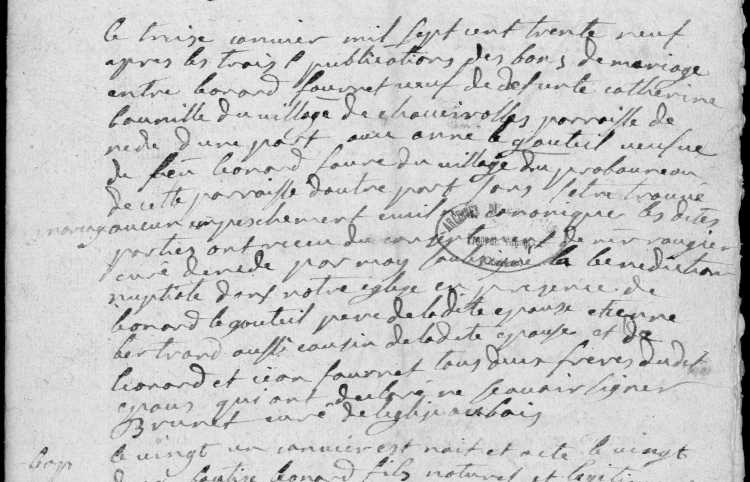 le treise janvier mil sept cent trente neuf
apres les trois publications des bans de mariage
entre leonard fournet veuf de defunte catherine
du village de chauveirolles parroisse de
nede d'une part avec anne legouteil veufve
de feu leonard faure du village du probaureau
de cette parroisse d'autre part sans s'etre trouvé
mariage aucun empeschement civil ny canonique les dites
parties ont receu du consentement de mr rougier
curé de nede par moy soubsigné la benediction
nuptiale dans notre eglise en presence de
leonard legouteil pere de la dite epouse etienne
bertrand aussi cousin de la dite epouse et de
leonard et jean fournet tous deux freres dudit
epoux qui ont declaré ne sçavoir signer
Brunet curé de leglise au bois
le vingt un janvier est nait et a été le vingt
leonard fils naturel et legitime